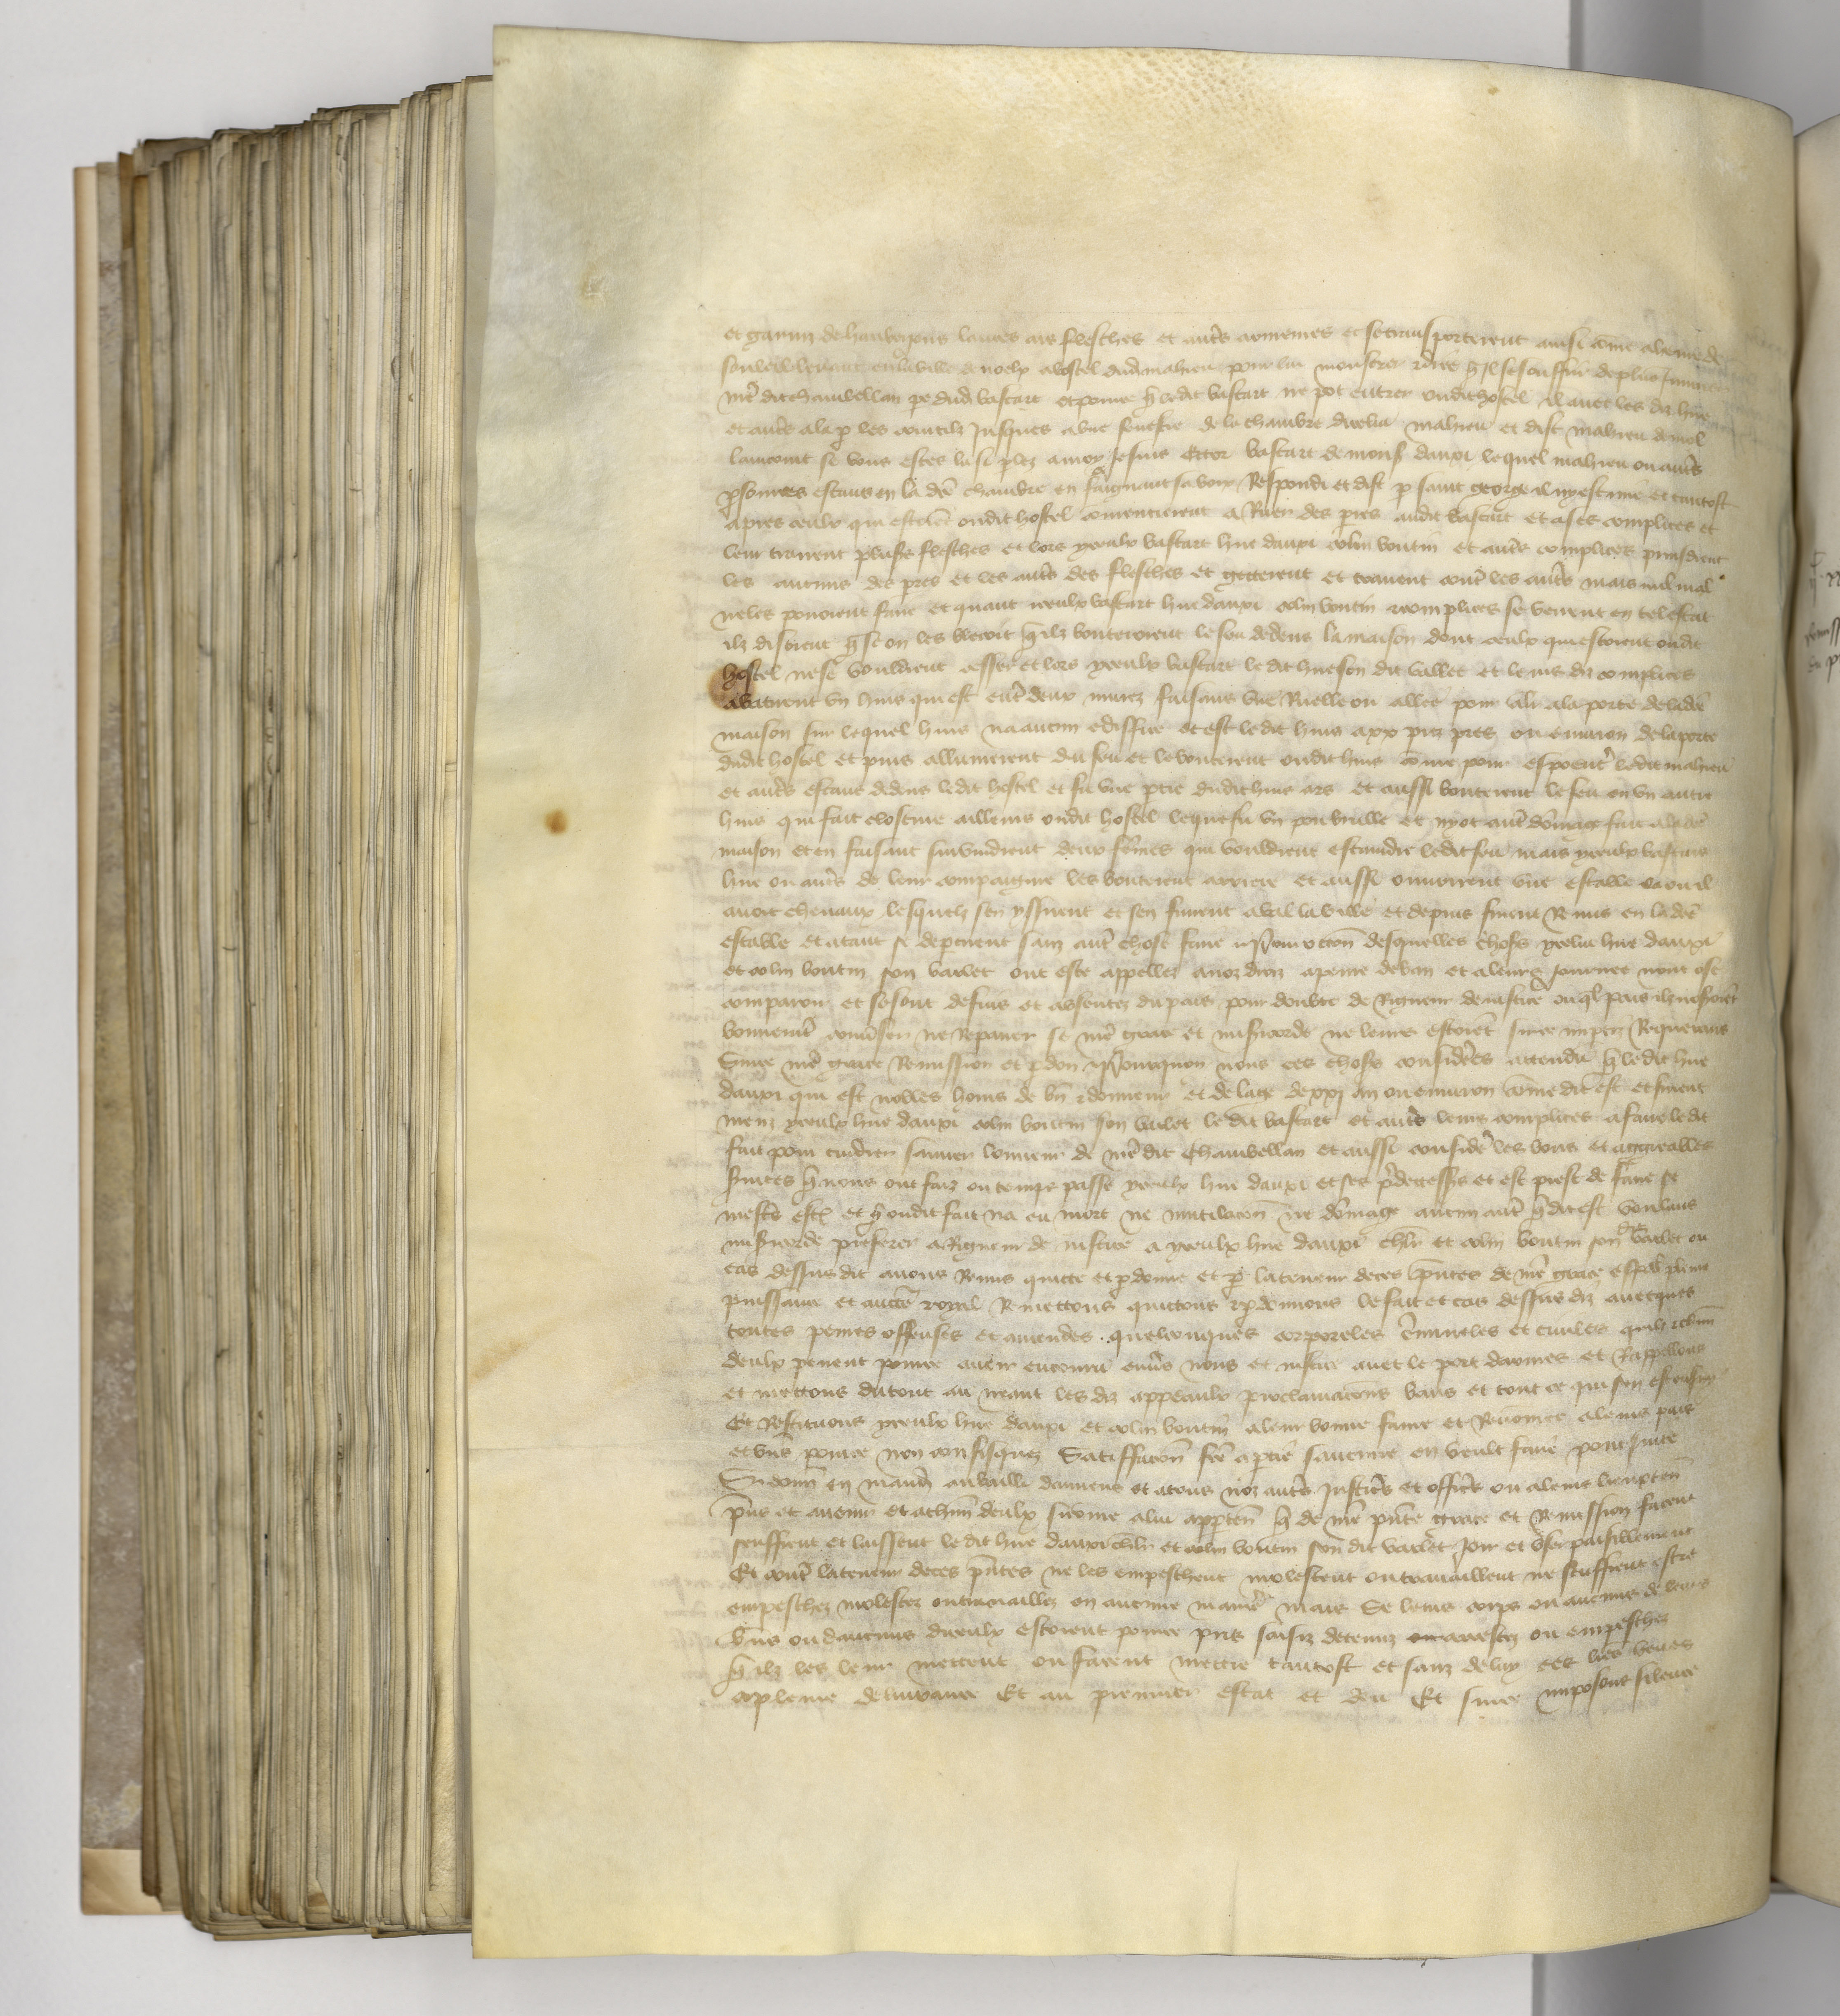 et garniz de haubergons lances arcs flesches et aut̃s armeures et se transporterent ainsi co͂me a heure de
souleil levant en la ville de noelx a lostel dudit mahieu pour lui monstrer et dire q̃ Il se souffist de plus Injurier
nr̃e dit chambellan pere dudit bastart et pource q̃ ledit bastart ne pot entrer oudit hostel il avec les diz hue
et aut̃s ala p les courtilz jusques a une fenestre de la chambre dicelui mahieu et dist mahieu de mol
laincourt se vous estes la si plez a moy Je suis Ector bastart de mons̃ dauxi lequel mahieu ou aut̃s
p̱sonnes estans en la dc̃e chambre en faignant sa voix Respondi et dist p saint george il ny est mie et tantost
apres ceulx qui estoie͂t oudit hostel commencierent a Ruer des pierres audit bastart et a ses complices et
leur trairent plus̃rs flesches et lors yceulx bastart hue dauxi colin boutin et aut̃s complices prindrent
les aucuns des pierres et les aut̃s des flesches et getterent et trairent cont̃ les aut̃s mais nul mal
ne les povoient faire et quant iceulx bastart hue dauxi colin boutin et complices se veirent en tel estat
ilz distrent q̃ se on les blecoit q̃ ilz bouteroient le feu dedens la maison dont ceulx qui estoient oudit
hostel ne se vouldrent cesser et lors yceulx bastart le dit hue son dit vallet et leurs diz complices
abatirent vn huis qui est ent̃ deux murez faisans vne Ruelle ou allee pour aler a la porte de ladc̃e
maison sur lequel huis na aucun ediffice et est ledit huis a xx piez pres ou environ de la porte
dudit hostel et puis allumerent du feu et le bouterent oudit huis co͂me pour espoent̃ ledit mahieu
et aut̃s estans dedens ledit hostel et fu vne ptie dudit huis ars et aussi bouterent le feu en vn autre
huis qui fait closture ailleurs oudit hostel lequel fu vn pou brulle et ny ot aut̃ do͂mage fait a la dc̃e
maison et en faisant survindrent deux fe͂mes qui vouldrent estaindre ledit feu mais yceulx bastart
hue ou aut̃s de leur compaignie les bouterent arriere et aussi ouvrirent vne estable ou il
avoit chevaux lesquelz sen yssirent et sen fuirent aval la ville et depuis furent Remis en ladc̃e
estable et atant se departirent sanz aut̃ chose faire desquelles choses ycelui hue dauxi
et colin boutin son varlet ont este appellez a noz droiz a peine de ban et a leurs journees nont ose
comparoir et se sont defuis et absentez du pais pour doubte de Rigueur de justice ouq̃l pais ilz noseroie͂t
bonneme͂t conv̾ser ne Reparer se nr̃e grace et mis̃icorde ne leur estoie͂t sur ce imparties Requerans
Sur ce nr̃e grace Remission et p̱don Pourquoy nous ces choses considerees attendu q̃ ledit hue
dauxi qui est nobles homs de bie͂ et donneur et de laage de xxj an ou environ co͂me dit est et furent
meuz yceulx hue dauxi colin boutin son varlet le dit bastart et aut̃s leurs complices a faire le dit
fait pour cuidier sauver lonneur de nr̃e dit chambellan et aussi considere les bons et aggreables
services q̃ nous ont faiz ou temps passe yceulx hue dauxi et ses predecess̃rs et est prest de faire se
mest̃s est et q̃ oudit fait na eu mort ne mutilacio͂ ne do͂mage aucun aut̃ q̃ dit est voulans
mis̃icorde preferer a Rigueur de justice a yceulx hue dauxi chl̃r et colin boutin son dit varlet ou
cas dessusdit avons Remis quicte et p̱donne et p la teneur de ces p̃ntes de nr̃e grace esp̃al plaine
puissance et auct̃e royal Remettons quictons et p̱donnons le fait et cas dessus diz avecques
toutes peines offenses et amendes quelconques corporeles criminelles et civiles quilz et chũn
deulx pevent pource avoir encouru env̾s nous et justice avec le port darmes et Rappellons
et mettons du tout au neant les diz appeaulx proclamacio͂s bans et tout ce qui sen est ensuy
Et Restituons yceulx hue dauxi et colin boutin a leur bonne fame et Reno͂mee a leurs pais
et biẽs pource non confisquez Satisffacio͂ fc̃e a partie saucune en veult faire poursuite
Si donno͂s en mandemt̃ au bailli damiens et a tous noz aut̃s justiciers et officiers ou a leurs lieuxten̾
p̃ns et avenir et a chũn deulx si co͂me a lui apparten̾ q̃ de nr̃e p̃nte grace et Remission facent
seuffrent et laissent le dit hue dauxi chl̃r et colin boutin son dit varlet joir et user paisiblement
Et cont̃ la teneur de ces p̃ntes ne les empeschent molestent ou travaillent ne seuffrent estre
empeschez molestez ou travaillez en aucune maniere mais se leurs corps ou aucuns de leurs
biẽs ou daucuns diceulx estoient pource pris saisiz detenuz ou arrestez ou empeschez
q̃ ilz les leur mettent ou facent mettre tantost et sanz delay ces l͂res veues
a plaine delivrance Et au premier estat et deu Et sur ce imposons silence